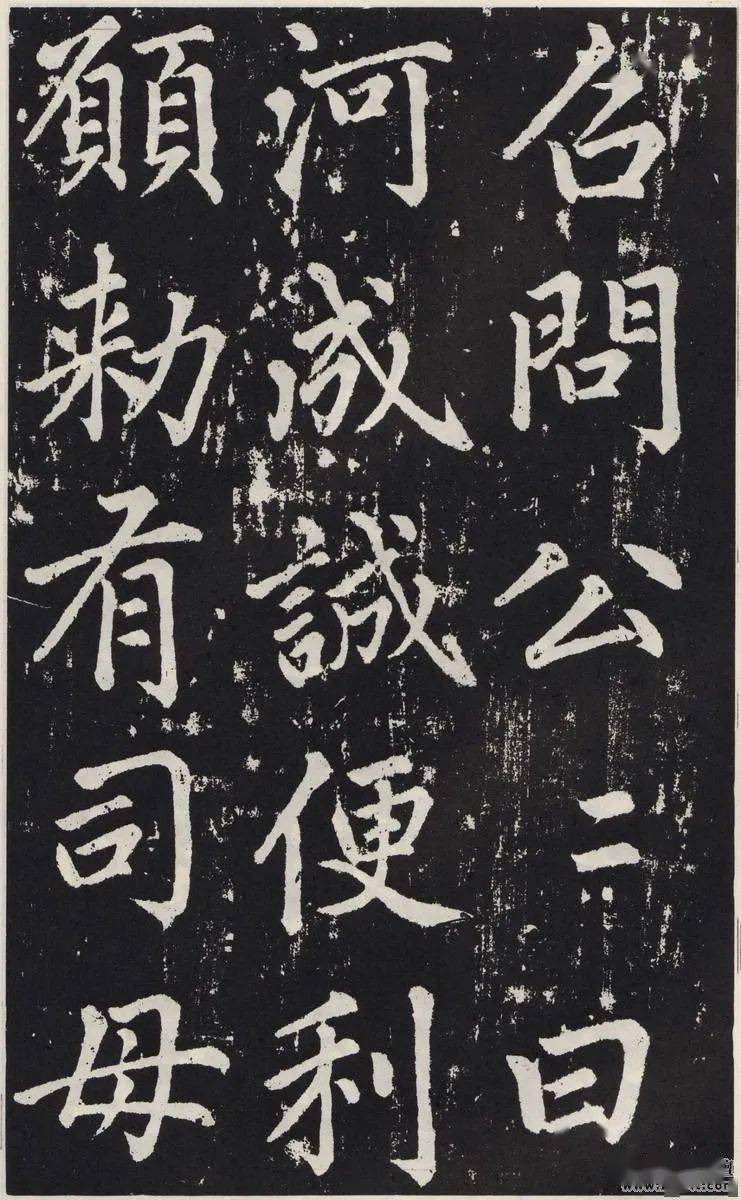 召問公〻曰
河成誠便利
願勑有司毋